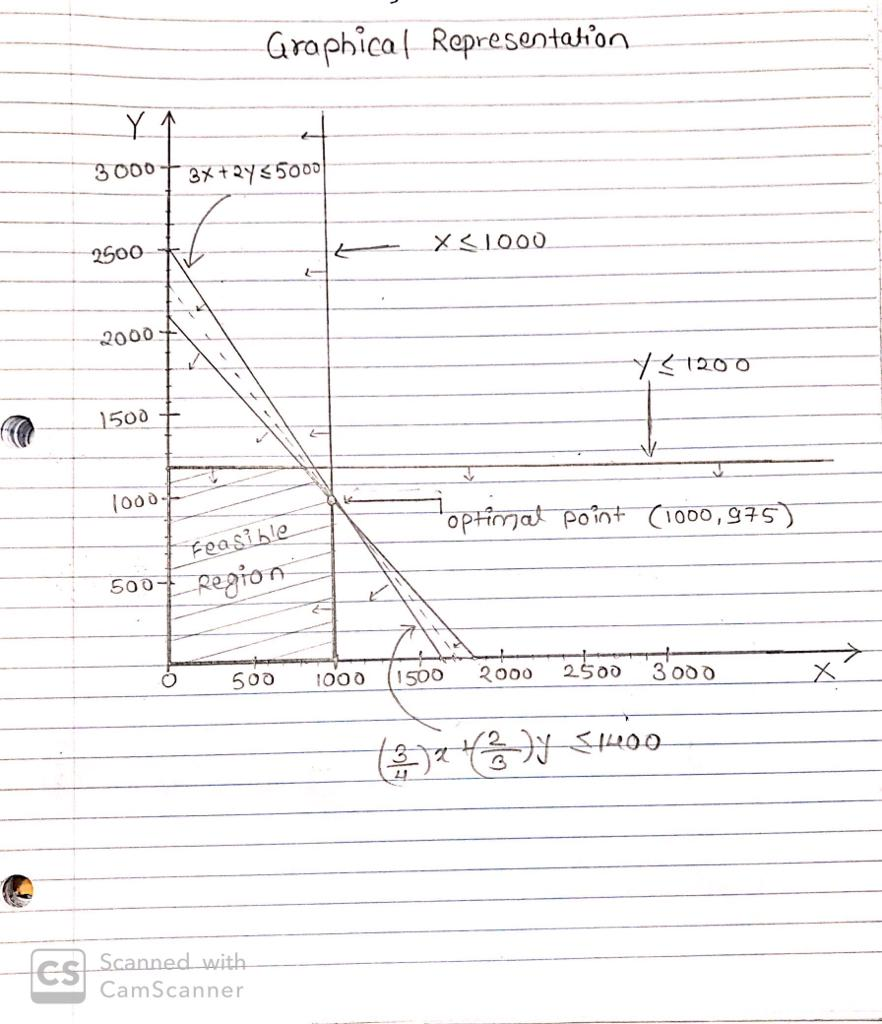 Graphical Representation
Y
3000
3x + 2y ≤ 5000
2500
X ≤ 1000
2000
Y ≤ 1200
1500
1000
optimal point (1000, 975)
Feasible
Region
500
0 500 1000 1500 2000 2500 3000 X
(3/4)x + (2/3)y ≤ 1400
CS Scanned with
CamScanner